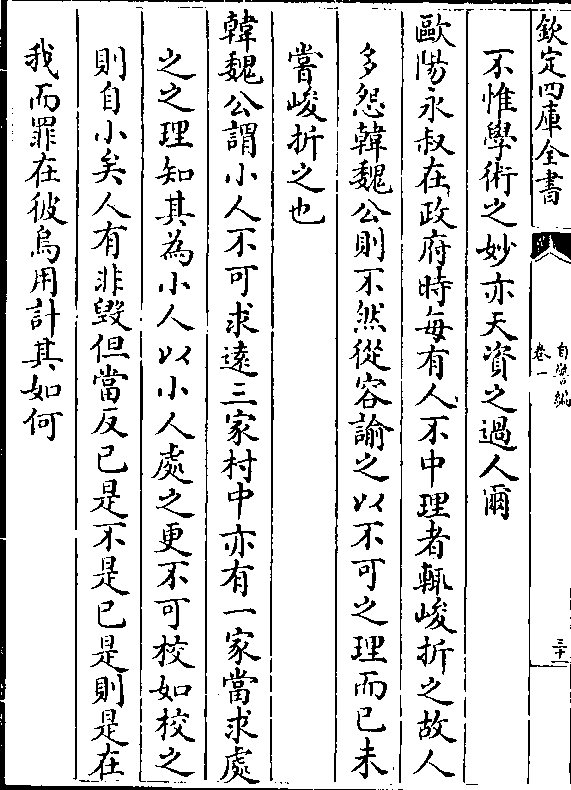 欽定四庫全書
自警編
卷一
三十一
不惟學術之妙亦天資之過人爾
歐陽永叔在政府時每有人不中理者輒峻折之故人
多怨韓魏公則不然從容諭之以不可之理而已未
嘗峻折之也
韓魏公謂小人不可求遠三家村中亦有一家當求處
之之理知其為小人以小人處之更不可校如校之
則自小矣人有非毀但當反已是不是已是則是在
我而罪在彼烏用計其如何